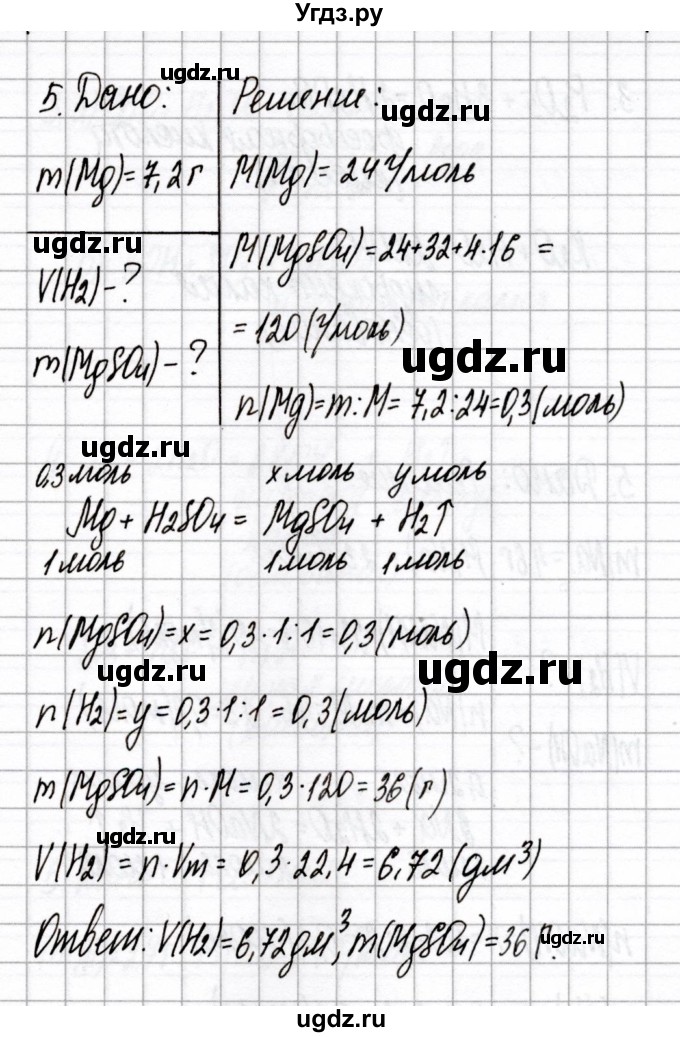 Угдз.ру
5. Дано: ugdz.ru Решение: ugdz.ru
m(Mg)=7,2г M(Mg)=24г/моль
ugdz.ru M(MgSO4)=24+32+4·16 =
V(H2)-? =120(г/моль)
ugdz.ru
m(MgSO4)-? n(Mg)=m:M=7,2:24=0,3(моль)
ugdz.ru
0,3моль xмоль yмоль
Mg+H2SO4 = MgSO4 + H2↑
1моль 1моль 1моль
n(MgSO4)=x=0,3·1:1=0,3(моль)
ugdz.ru ugdz.ru
n(H2)=y=0,3·1:1=0,3(моль)
m(MgSO4)=n·M=0,3·120=36(г)
ugdz.ru
V(H2)=n·Vm=0,3·22,4=6,72(дм³)
ugdz.ru
Ответ: V(H2)=6,72дм³, m(MgSO4)=36г.
ugdz.ru
ugdz.ru